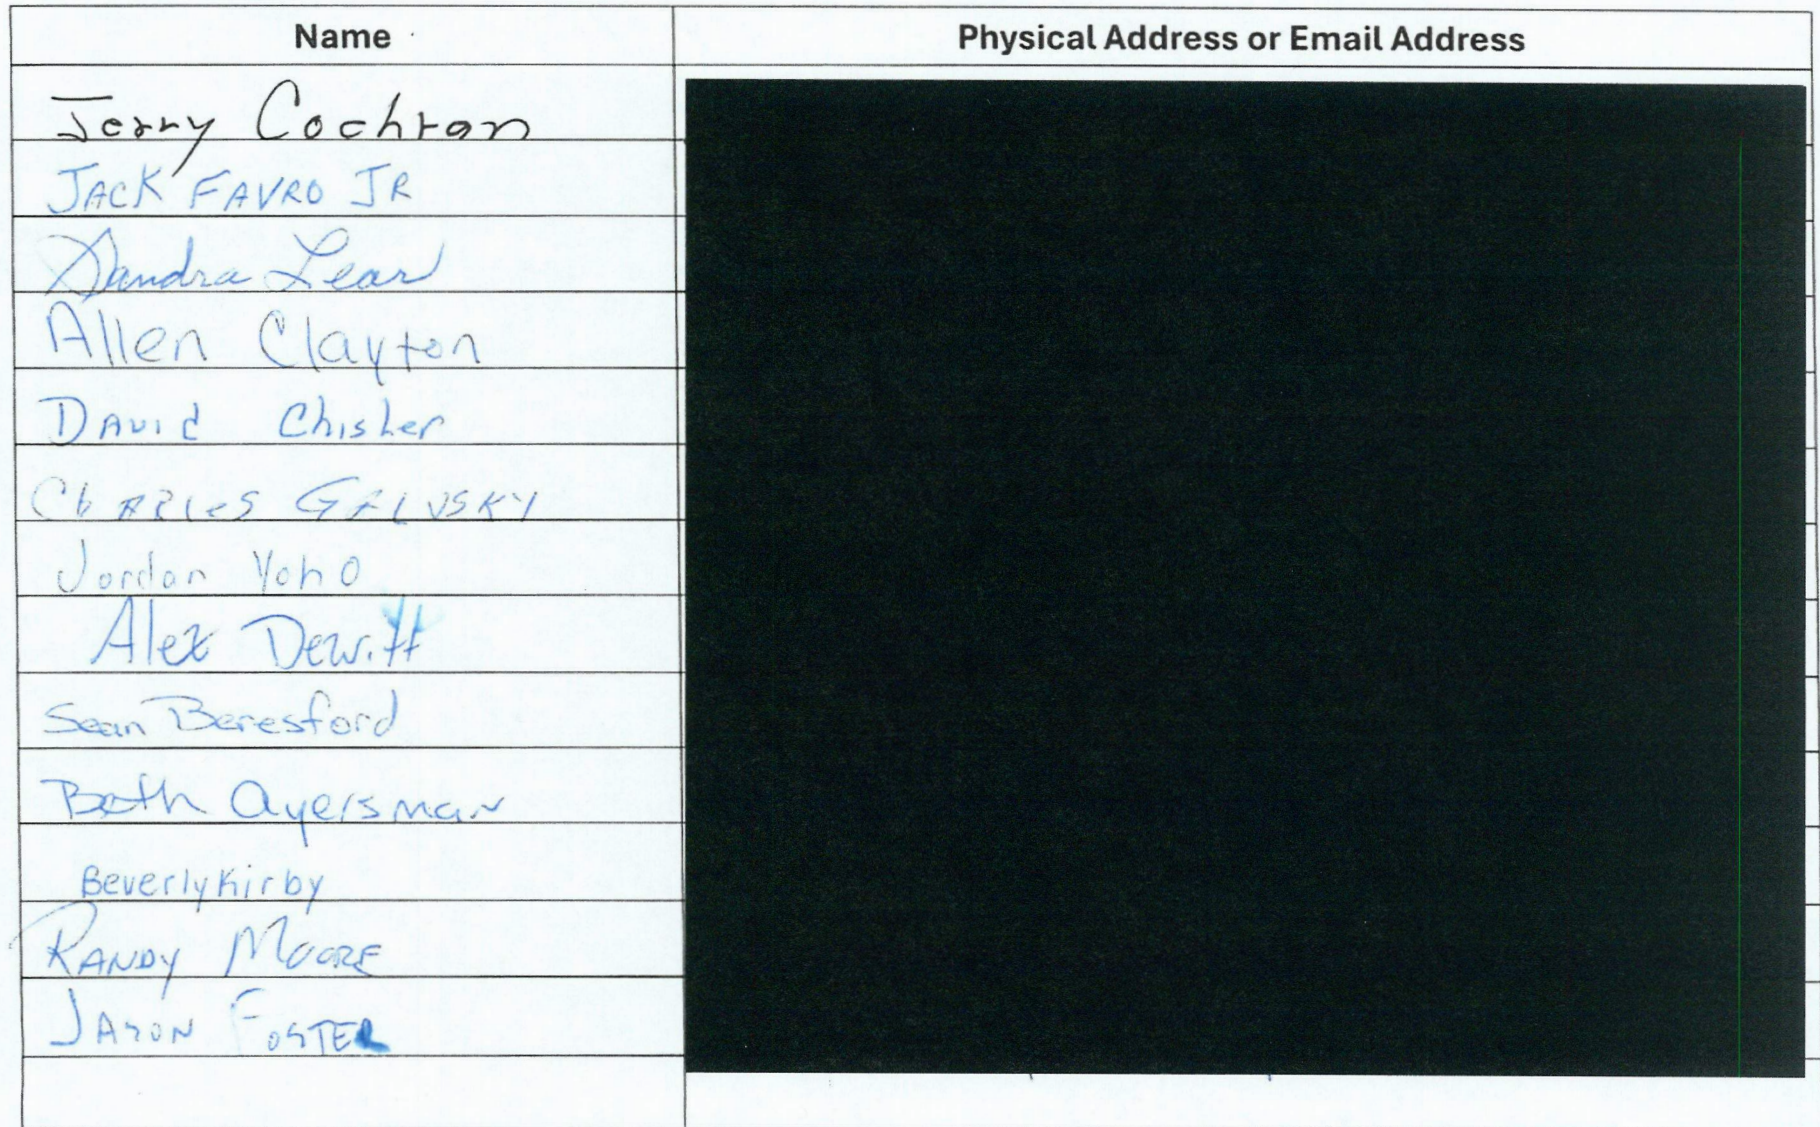 Name Physical Address or Email Address
Jerry Cochran
JACK FAVRO JR
Sandra Lear
Allen Clayton
DAVID Chisler
ChARLES GALUSKY
Jordan Yoho
Alex Dewitt
Sean Beresford
Beth Ayersman
Beverly Kirby
RANDY MOORE
JASON FOSTER